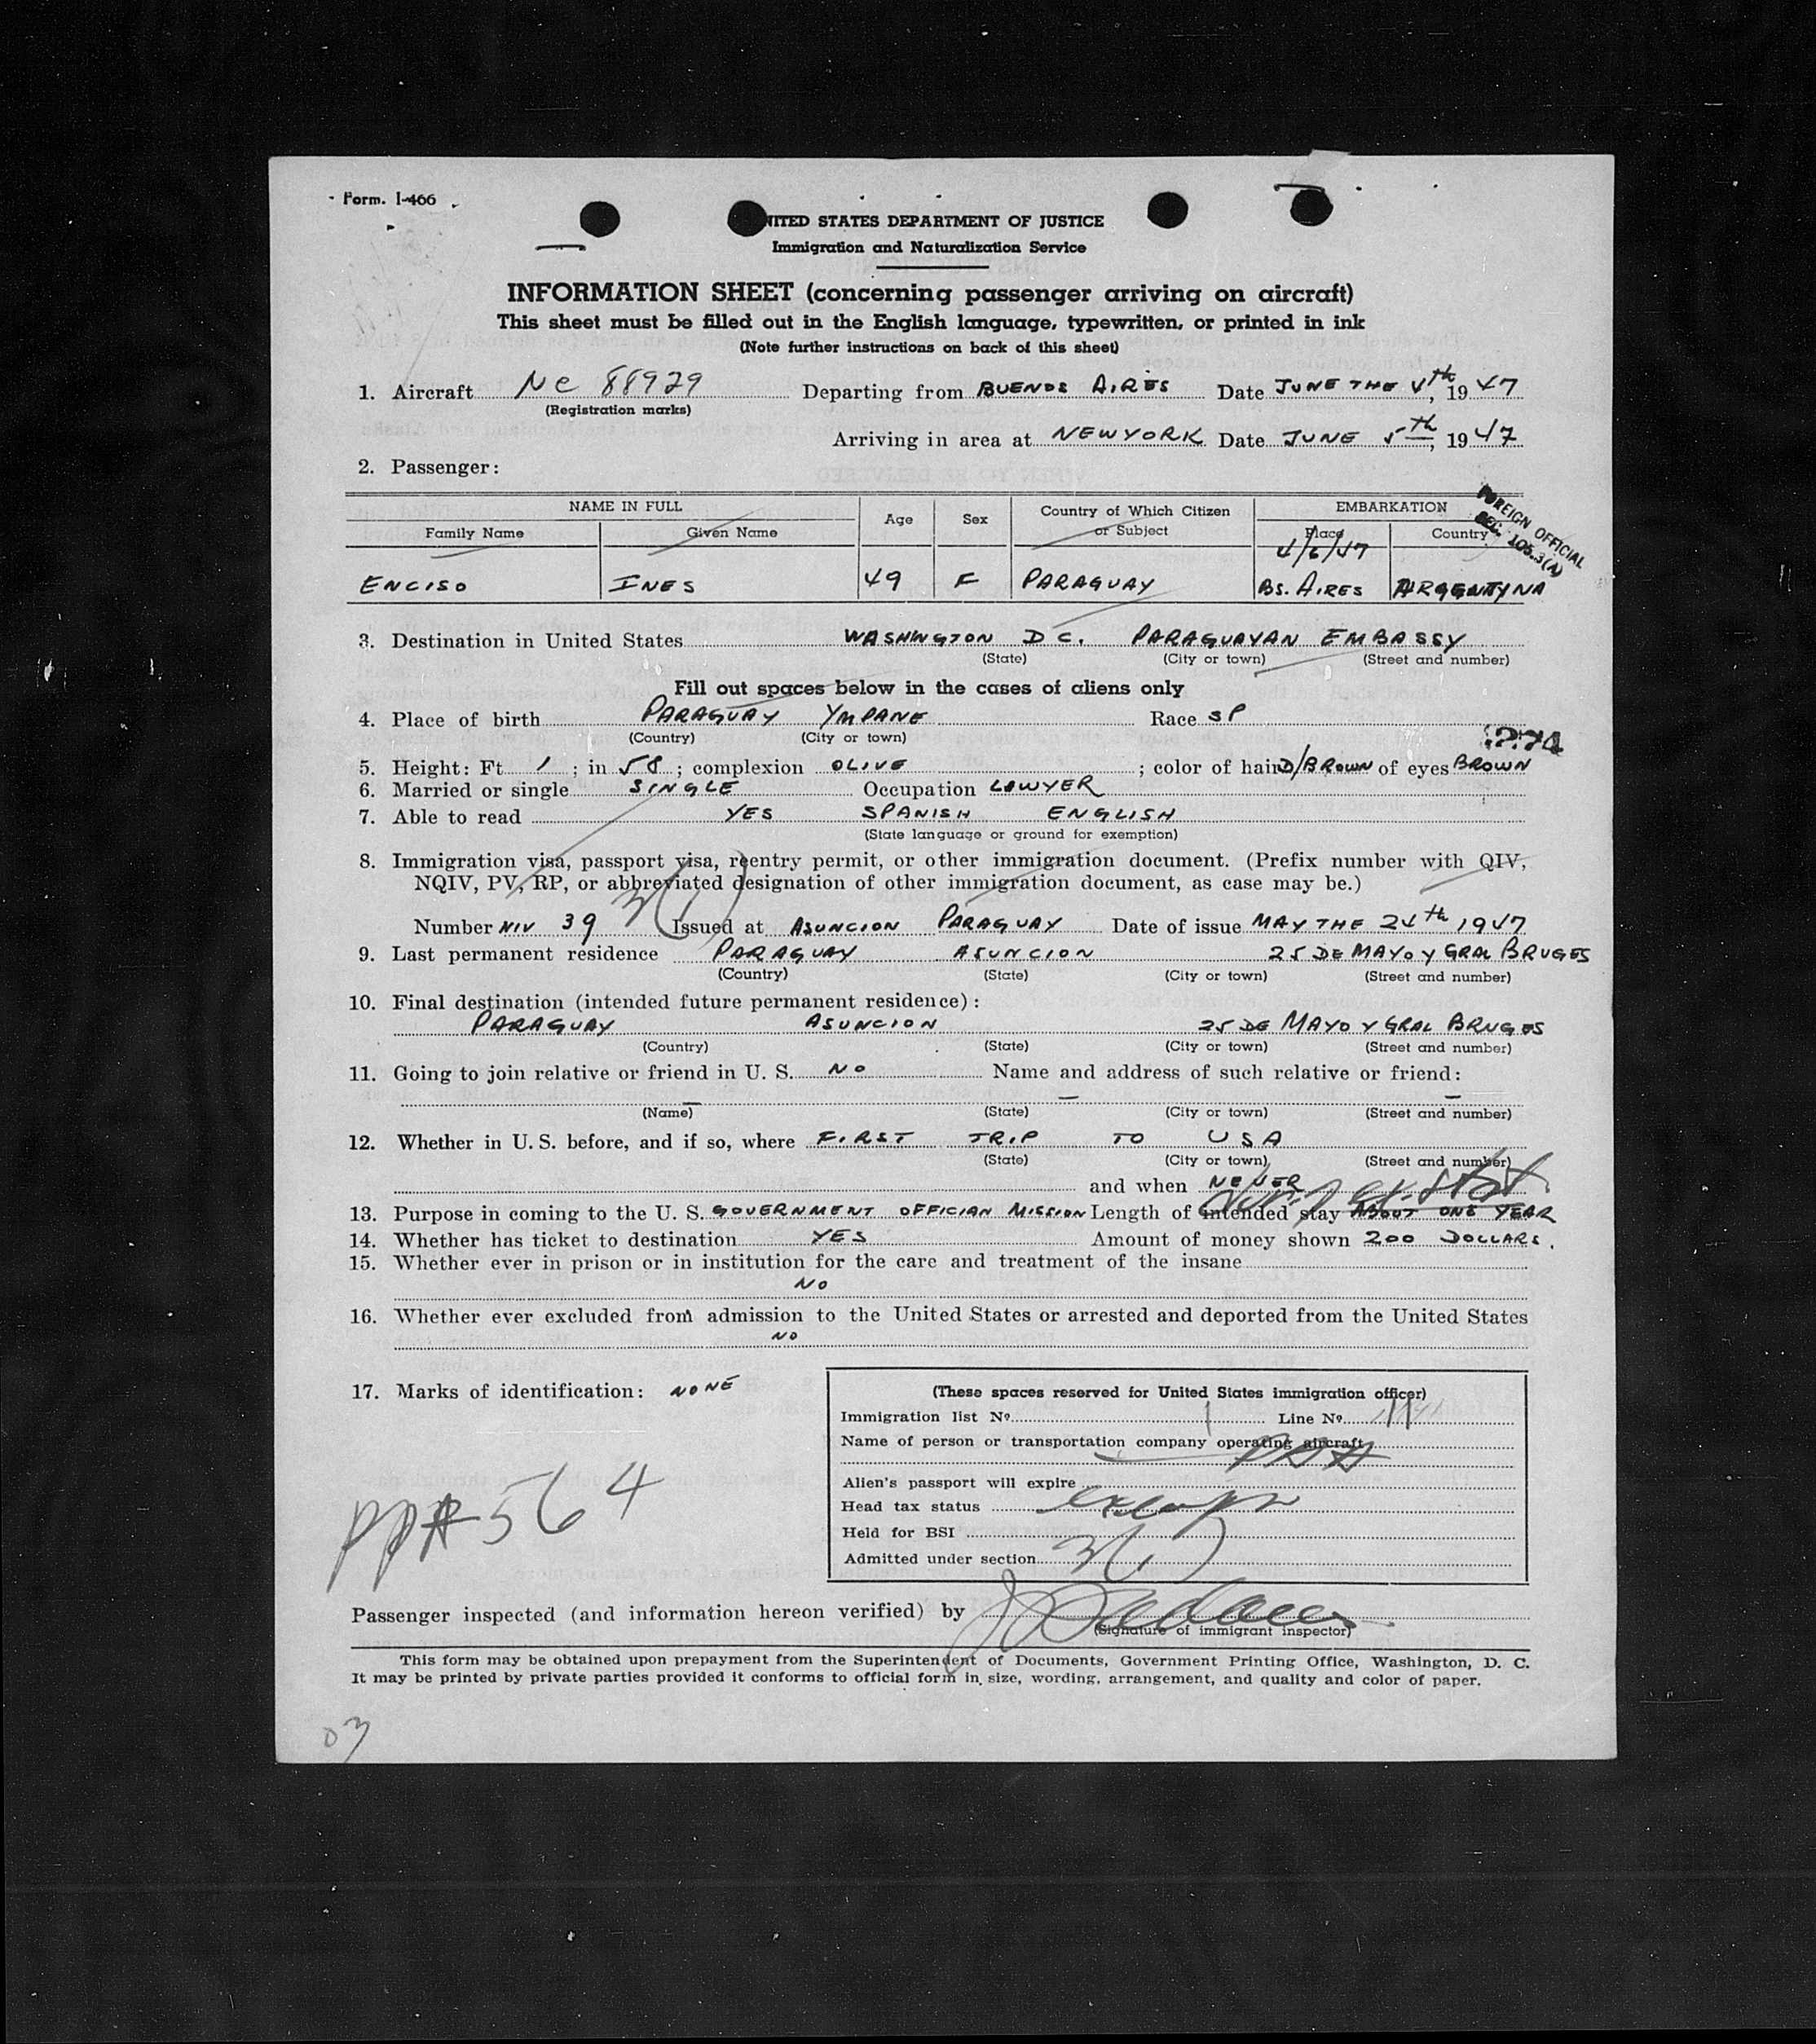 Form. I-466
UNITED STATES DEPARTMENT OF JUSTICE
Immigration and Naturalization Service
INFORMATION SHEET (concerning passenger arriving on aircraft)
This sheet must be filled out in the English language, typewritten, or printed in ink
(Note further instructions on back of this sheet)
1. Aircraft NC 88929 Departing from BUENOS AIRES Date JUNE THE 4th, 1947
(Registration marks)
Arriving in area at NEWYORK Date JUNE 5th, 1947
2. Passenger:
NAME IN FULL Age Sex Country of Which Citizen or Subject EMBARKATION
Family Name Given Name Place Country
FOREIGN OFFICIAL
SEC. 105.3(A)
4/6/47
ENCISO INES 49 F PARAGUAY BS. AIRES ARGENTYNA
3. Destination in United States WASHINGTON D C. PARAGUAYAN EMBASSY
(State) (City or town) (Street and number)
Fill out spaces below in the cases of aliens only
4. Place of birth PARAGUAY YMPANE Race SP
(Country) (City or town)
5. Height: Ft 1 ; in 58 ; complexion OLIVE ; color of hair D/BROWN of eyes BROWN
6. Married or single SINGLE Occupation LAWYER
7. Able to read YES SPANISH ENGLISH
(State language or ground for exemption)
8. Immigration visa, passport visa, reentry permit, or other immigration document. (Prefix number with QIV,
NQIV, PV, RP, or abbreviated designation of other immigration document, as case may be.)
3(1)
Number NIV 39 Issued at ASUNCION PARAGUAY Date of issue MAY THE 24th 1947
9. Last permanent residence PARAGUAY ASUNCION 25 DE MAYO Y GRAL BRUGES
(Country) (State) (City or town) (Street and number)
10. Final destination (intended future permanent residence):
PARAGUAY ASUNCION 25 DE MAYO Y GRAL BRUGES
(Country) (State) (City or town) (Street and number)
11. Going to join relative or friend in U. S. NO Name and address of such relative or friend:
(Name) (State) (City or town) (Street and number)
12. Whether in U. S. before, and if so, where FIRST TRIP TO USA
(State) (City or town) (Street and number)
and when NEVER
13. Purpose in coming to the U. S. GOVERNMENT OFFICIAN MISSION Length of intended stay ABOUT ONE YEAR
14. Whether has ticket to destination YES Amount of money shown 200 DOLLARS.
15. Whether ever in prison or in institution for the care and treatment of the insane
NO
16. Whether ever excluded from admission to the United States or arrested and deported from the United States
NO
17. Marks of identification: NONE
(These spaces reserved for United States immigration officer)
Immigration list No. 1 Line No. 11
Name of person or transportation company operating aircraft
PAA
Alien's passport will expire
Head tax status exempt
Held for BSI
Admitted under section 3(1)
PP# 564
Passenger inspected (and information hereon verified) by
(Signature of immigrant inspector)
This form may be obtained upon prepayment from the Superintendent of Documents, Government Printing Office, Washington, D. C.
It may be printed by private parties provided it conforms to official form in size, wording, arrangement, and quality and color of paper.
03